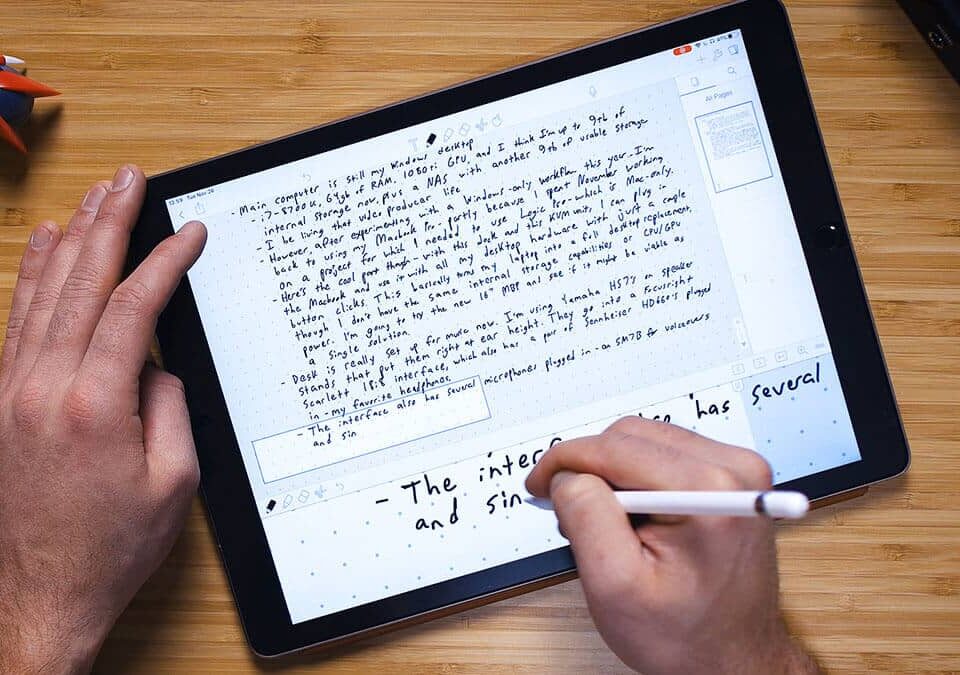 12:59 Tue Nov 26
All Pages
- Main computer is still my Windows desktop
- i7-8700K, 64gb of RAM, 1080ti GPU, and I think I'm up to 9tb of
internal storage now, plus a NAS with another 9tb of usable storage
- I be living that video producer life
- However, after experimenting with a Windows-only workflow this year - I'm
back to using my Macbook Pro - partly because I spent November working
on a project for which I needed to use Logic Pro - which is Mac-only.
- Here's the cool part though - with this dock and this KVM unit, I can plug in
the Macbook and use it with all my desktop hardware with just a couple
button clicks. This basically turns my laptop into a full desktop replacement,
though I don't have the same internal storage capabilities or CPU/GPU
power. I'm going to try the new 16" MBP and see if it might be viable as
a single solution.
- Desk is really set up for music now. I'm using Yamaha HS7's on speaker
stands that put them right at ear height. They go into a Focusright
Scarlett 18i8 interface, which also has a pair of Sennheiser HD660's plugged
in - my favorite headphones.
- The interface also has several microphones plugged in - an SM7B for voiceovers
and sin
- The interf has several
and sin